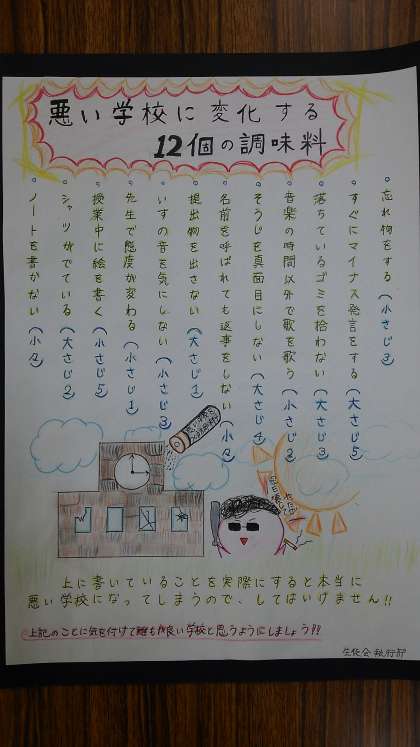 悪い学校に変化する
12個の調味料
。忘れ物をする(小さじ3)
。すぐにマイナス発言をする(大さじ5)
。落ちているゴミを拾わない(大さじ3)
。音楽の時間以外で歌を歌う(小さじ2)
。そうじを真面目にしない(大さじ4)
。名前を呼ばれても返事をしない(小々)
。提出物を出さない(大さじ1)
。いすの音を気にしない(小さじ3)
。先生で態度が変わる(小さじ1)
。授業中に絵を書く(小さじ5)
。シャツがでている(大さじ2)
。ノートを書かない(小々)
上に書いていることを実際にすると本当に
悪い学校になってしまうので、してはいけません!!
上記のことに気を付けて誰もが良い学校と思うようにしましょう!!
生徒会執行部